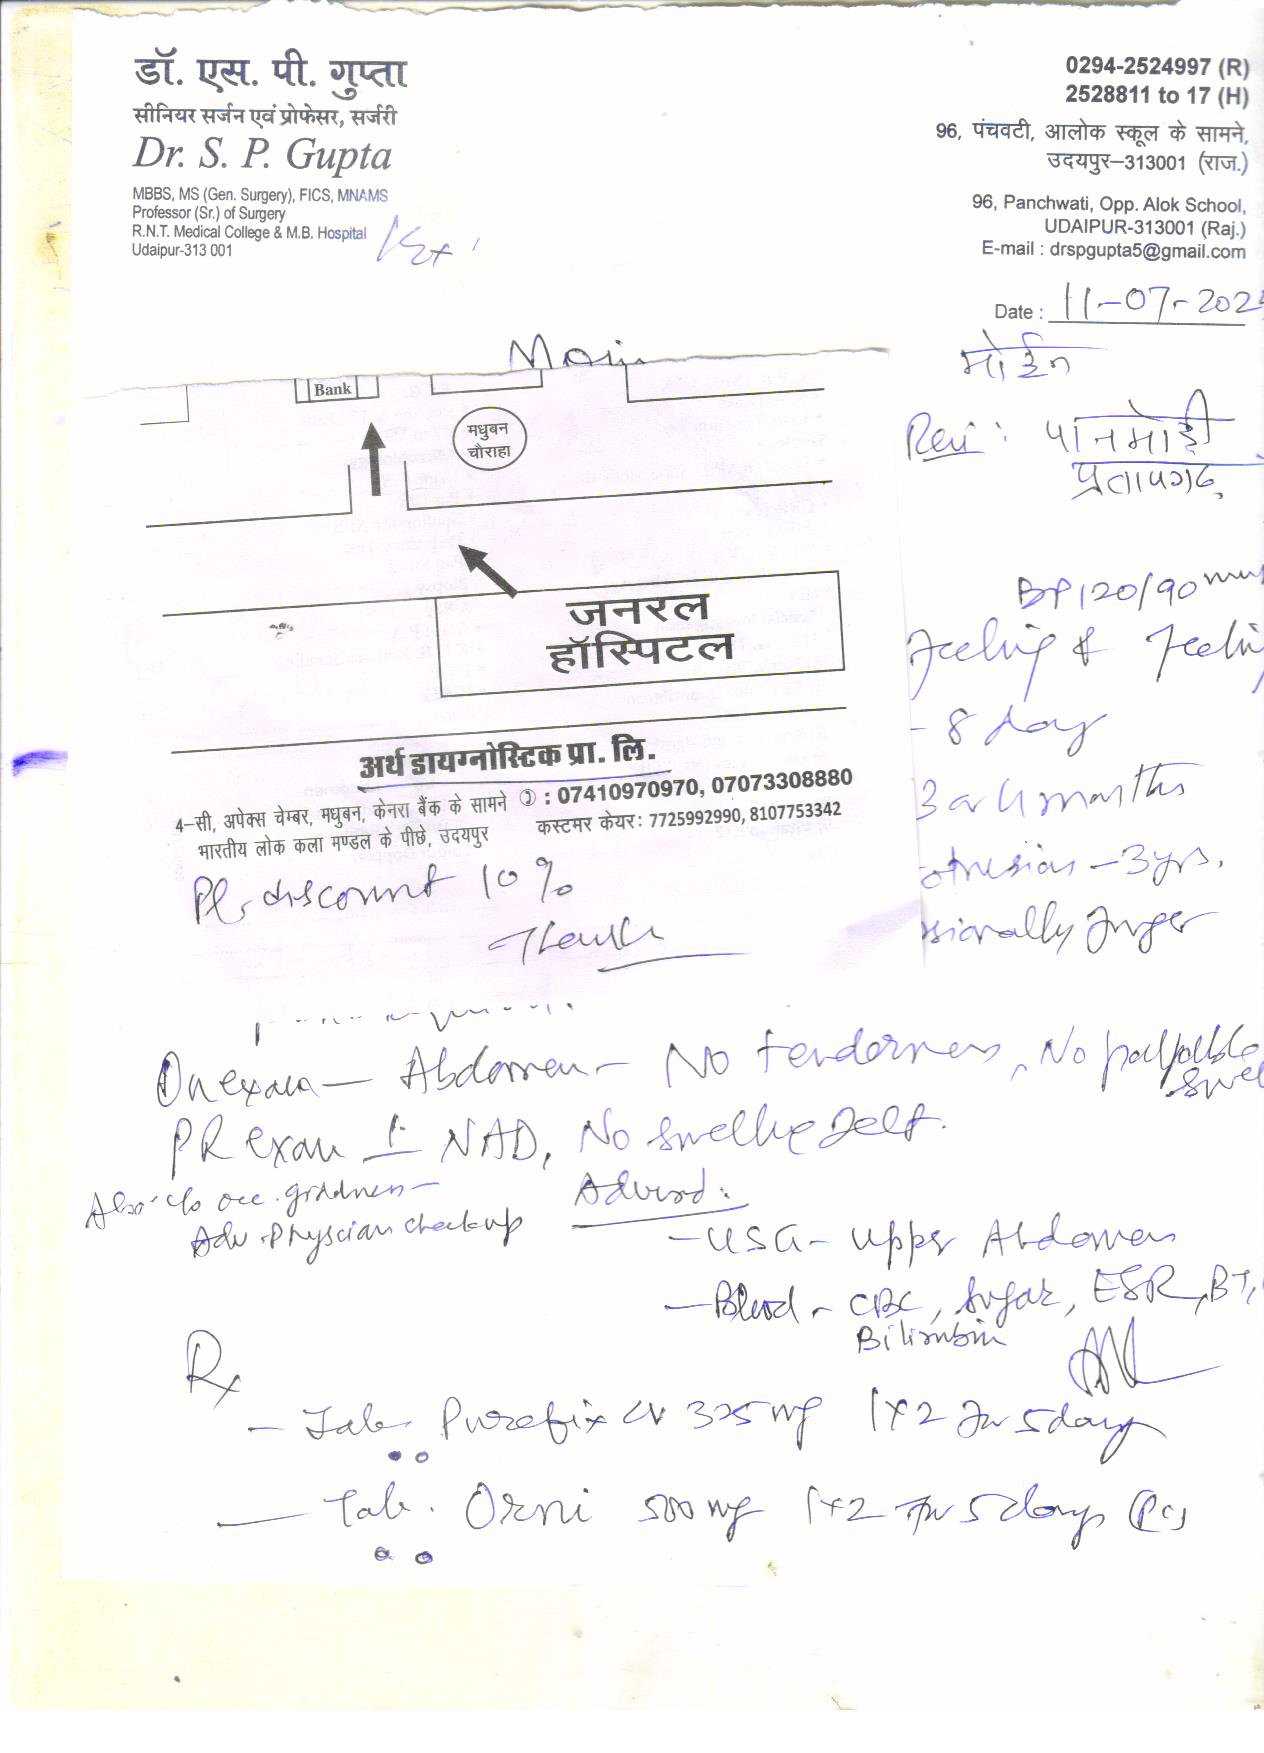 डॉ. एस. पी. गुप्ता
सीनियर सर्जन एवं प्रोफेसर, सर्जरी
Dr. S. P. Gupta
MBBS, MS (Gen. Surgery), FICS, MNAMS
Professor (Sr.) of Surgery
R.N.T. Medical College & M.B. Hospital
Udaipur-313 001
0294-2524997 (R)
2528811 to 17 (H)
96, पंचवटी, आलोक स्कूल के सामने,
उदयपुर–313001 (राज.)
96, Panchwati, Opp. Alok School,
UDAIPUR-313001 (Raj.)
E-mail : drspgupta5@gmail.com
Date : 11-07-202
मोईन
पानमोड़ी
प्रतापगढ़
BP 120/90 mm
Feeling & Feelin
- 8 day
3 or 4 months
- 3 yrs.
Bank
मधुबन
चौराहा
जनरल
हॉस्पिटल
अर्थ डायग्नोस्टिक प्रा. लि.
4–सी, अपेक्स चेम्बर, मधुबन, केनरा बैंक के सामने : 07410970970, 07073308880
भारतीय लोक कला मण्डल के पीछे, उदयपुर कस्टमर केयर: 7725992990, 8107753342
Pl. discount 10 %
Thanks
On exam — Abdomen - No tenderness, No palpable
PR exam NAD, No swelling felt.
Also c/o occ. giddiness —
Adv. Physcian check up
Advised :
- USG - Upper Abdomen
- Blood - CBC, Sugar, ESR, BT,
Bilirubin
Rx
- Tab. Purefix CV 325 mg 1x2 for 5 days
- Tab. Orni 500 mg 1x2 for 5 days (Pc)